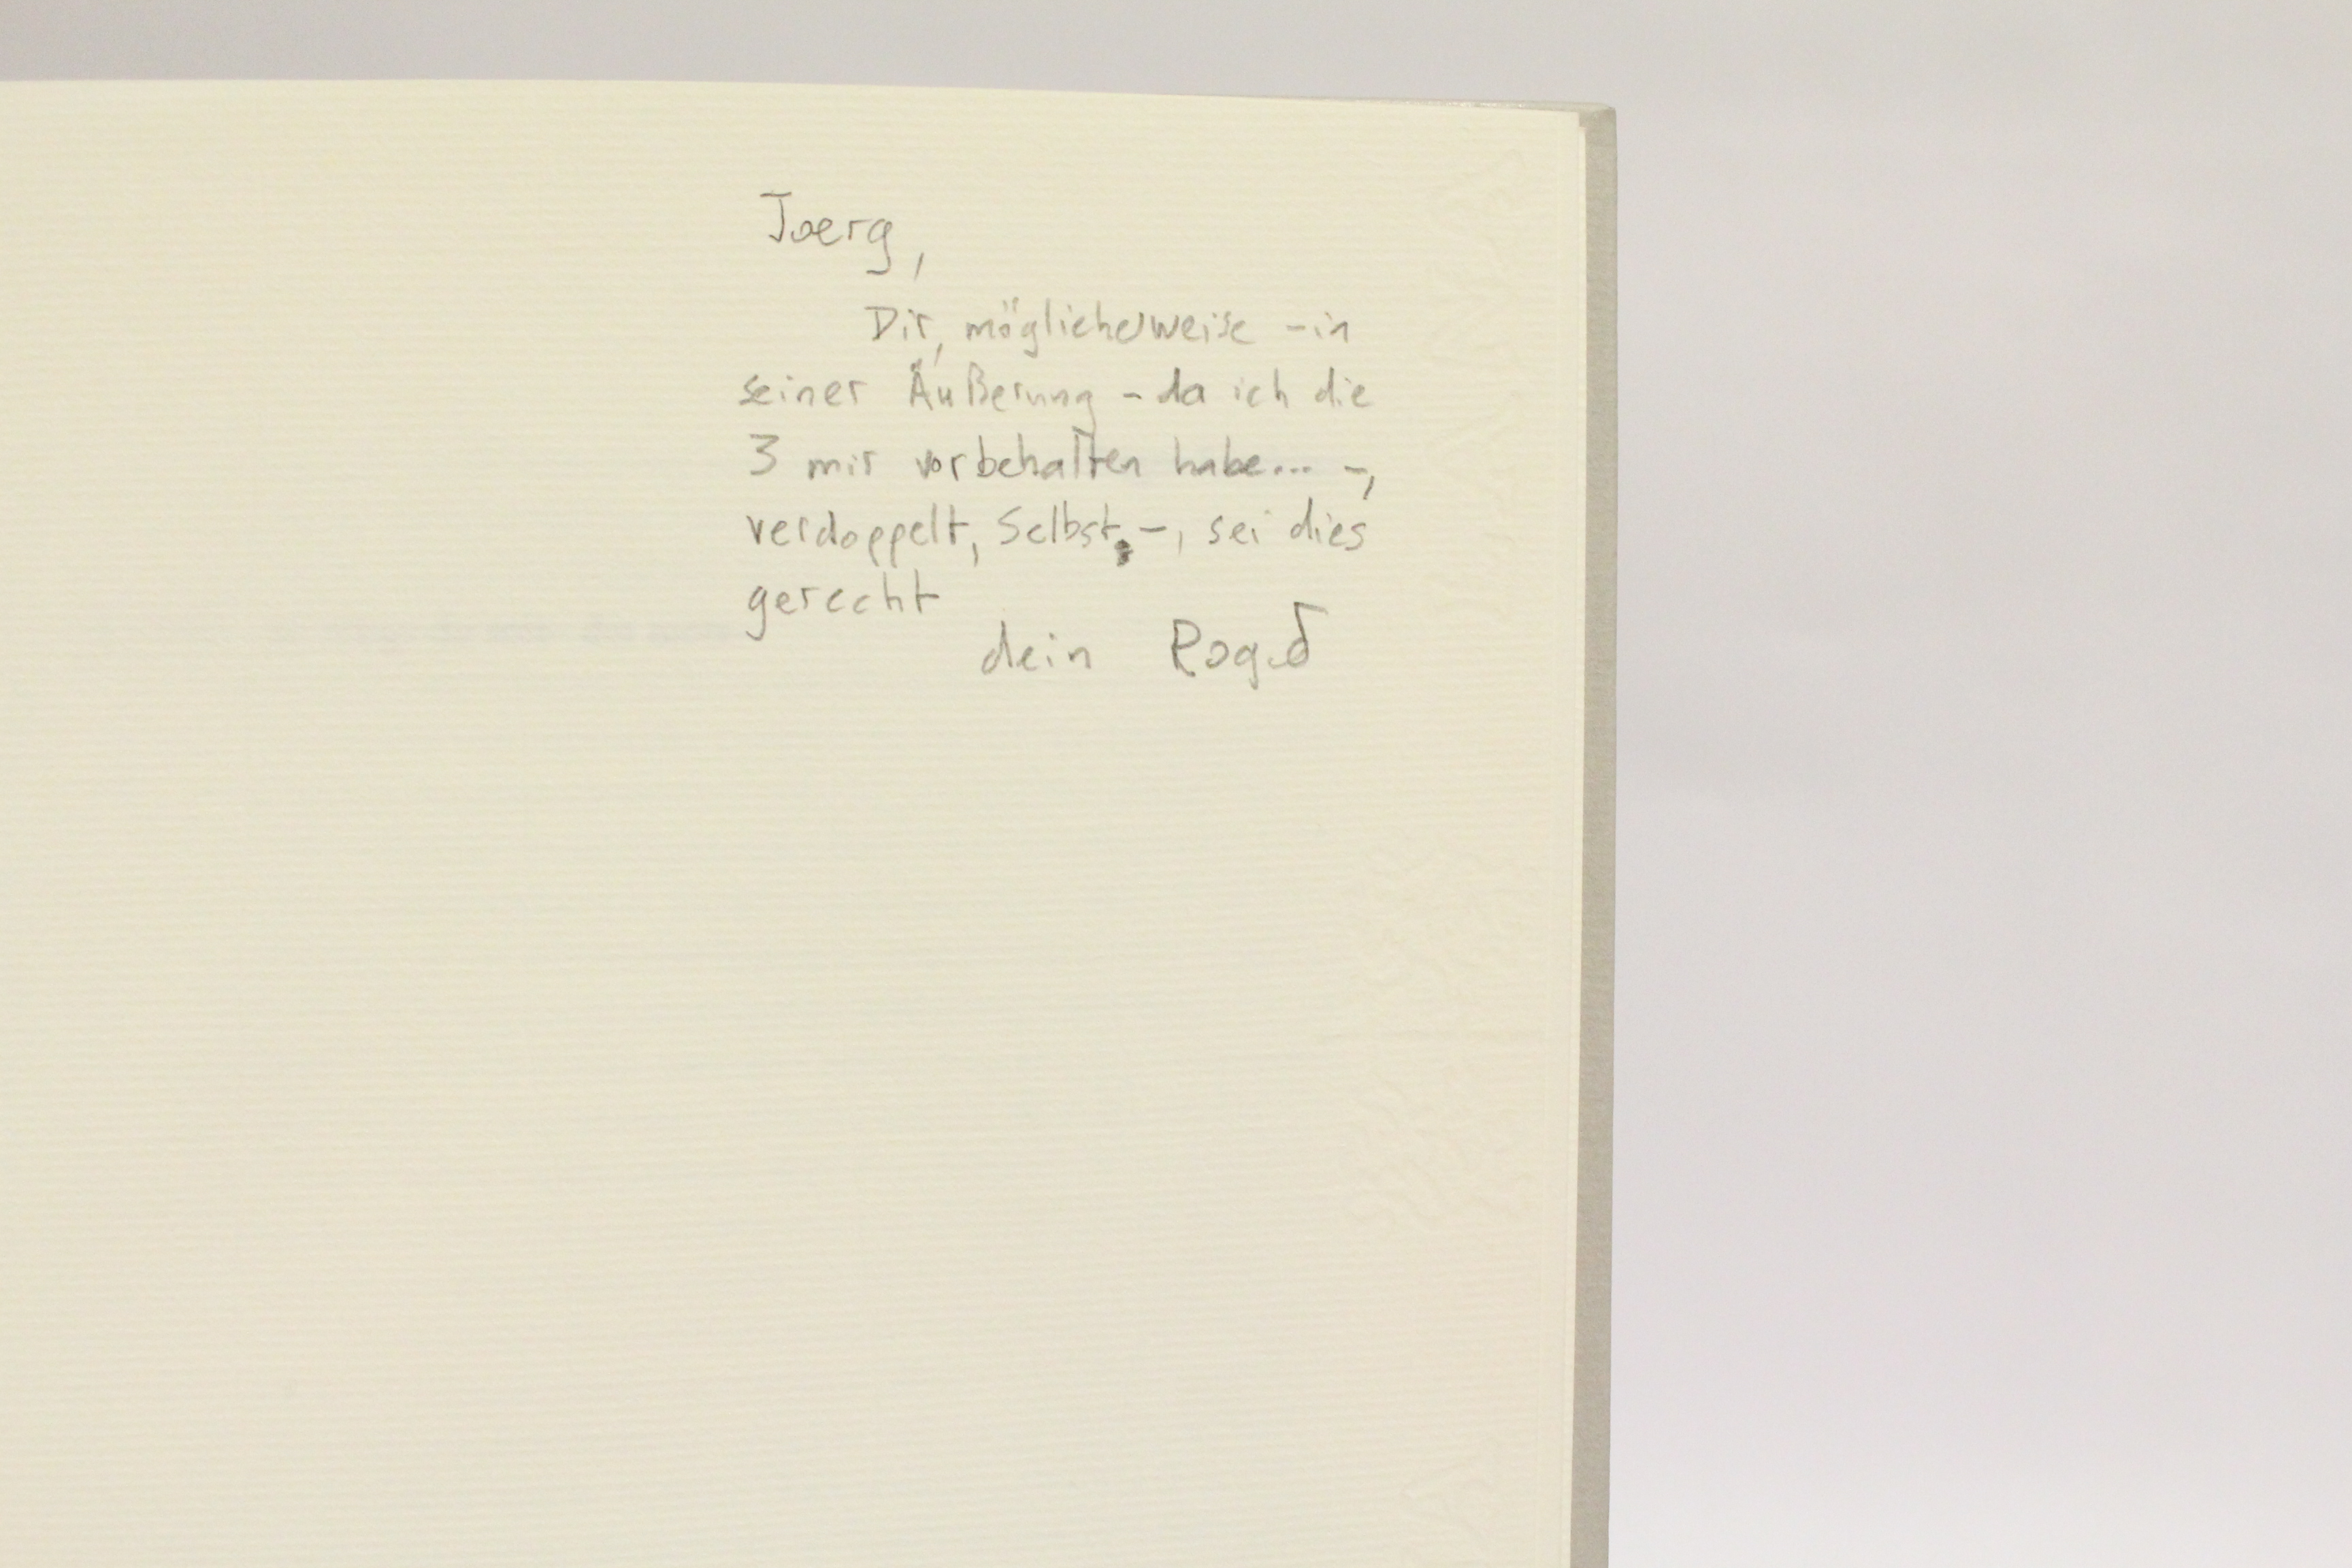 Joerg,
Dir, möglicherweise -in
seiner Äußerung - da ich die
3 mir vorbehalten habe... -,
verdoppelt, Selbst, -, sei dies
gerecht
dein